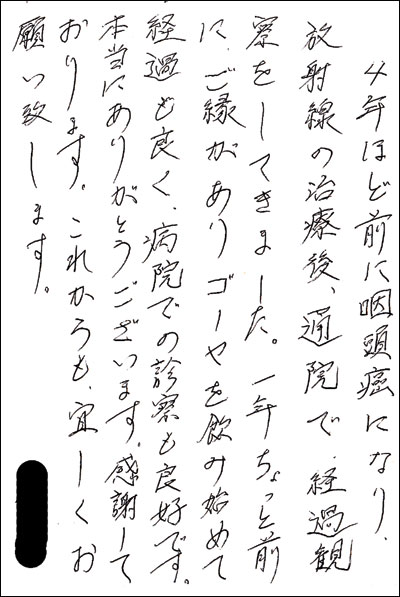 4年ほど前に咽頭癌になり、
放射線の治療後、通院で経過観
察をしてきました。一年ちょっと前
に、ご縁がありゴーヤを飲み始めて
経過も良く、病院での診察も良好です。
本当にありがとうございます。感謝して
おります。これからも、宜しくお
願い致します。